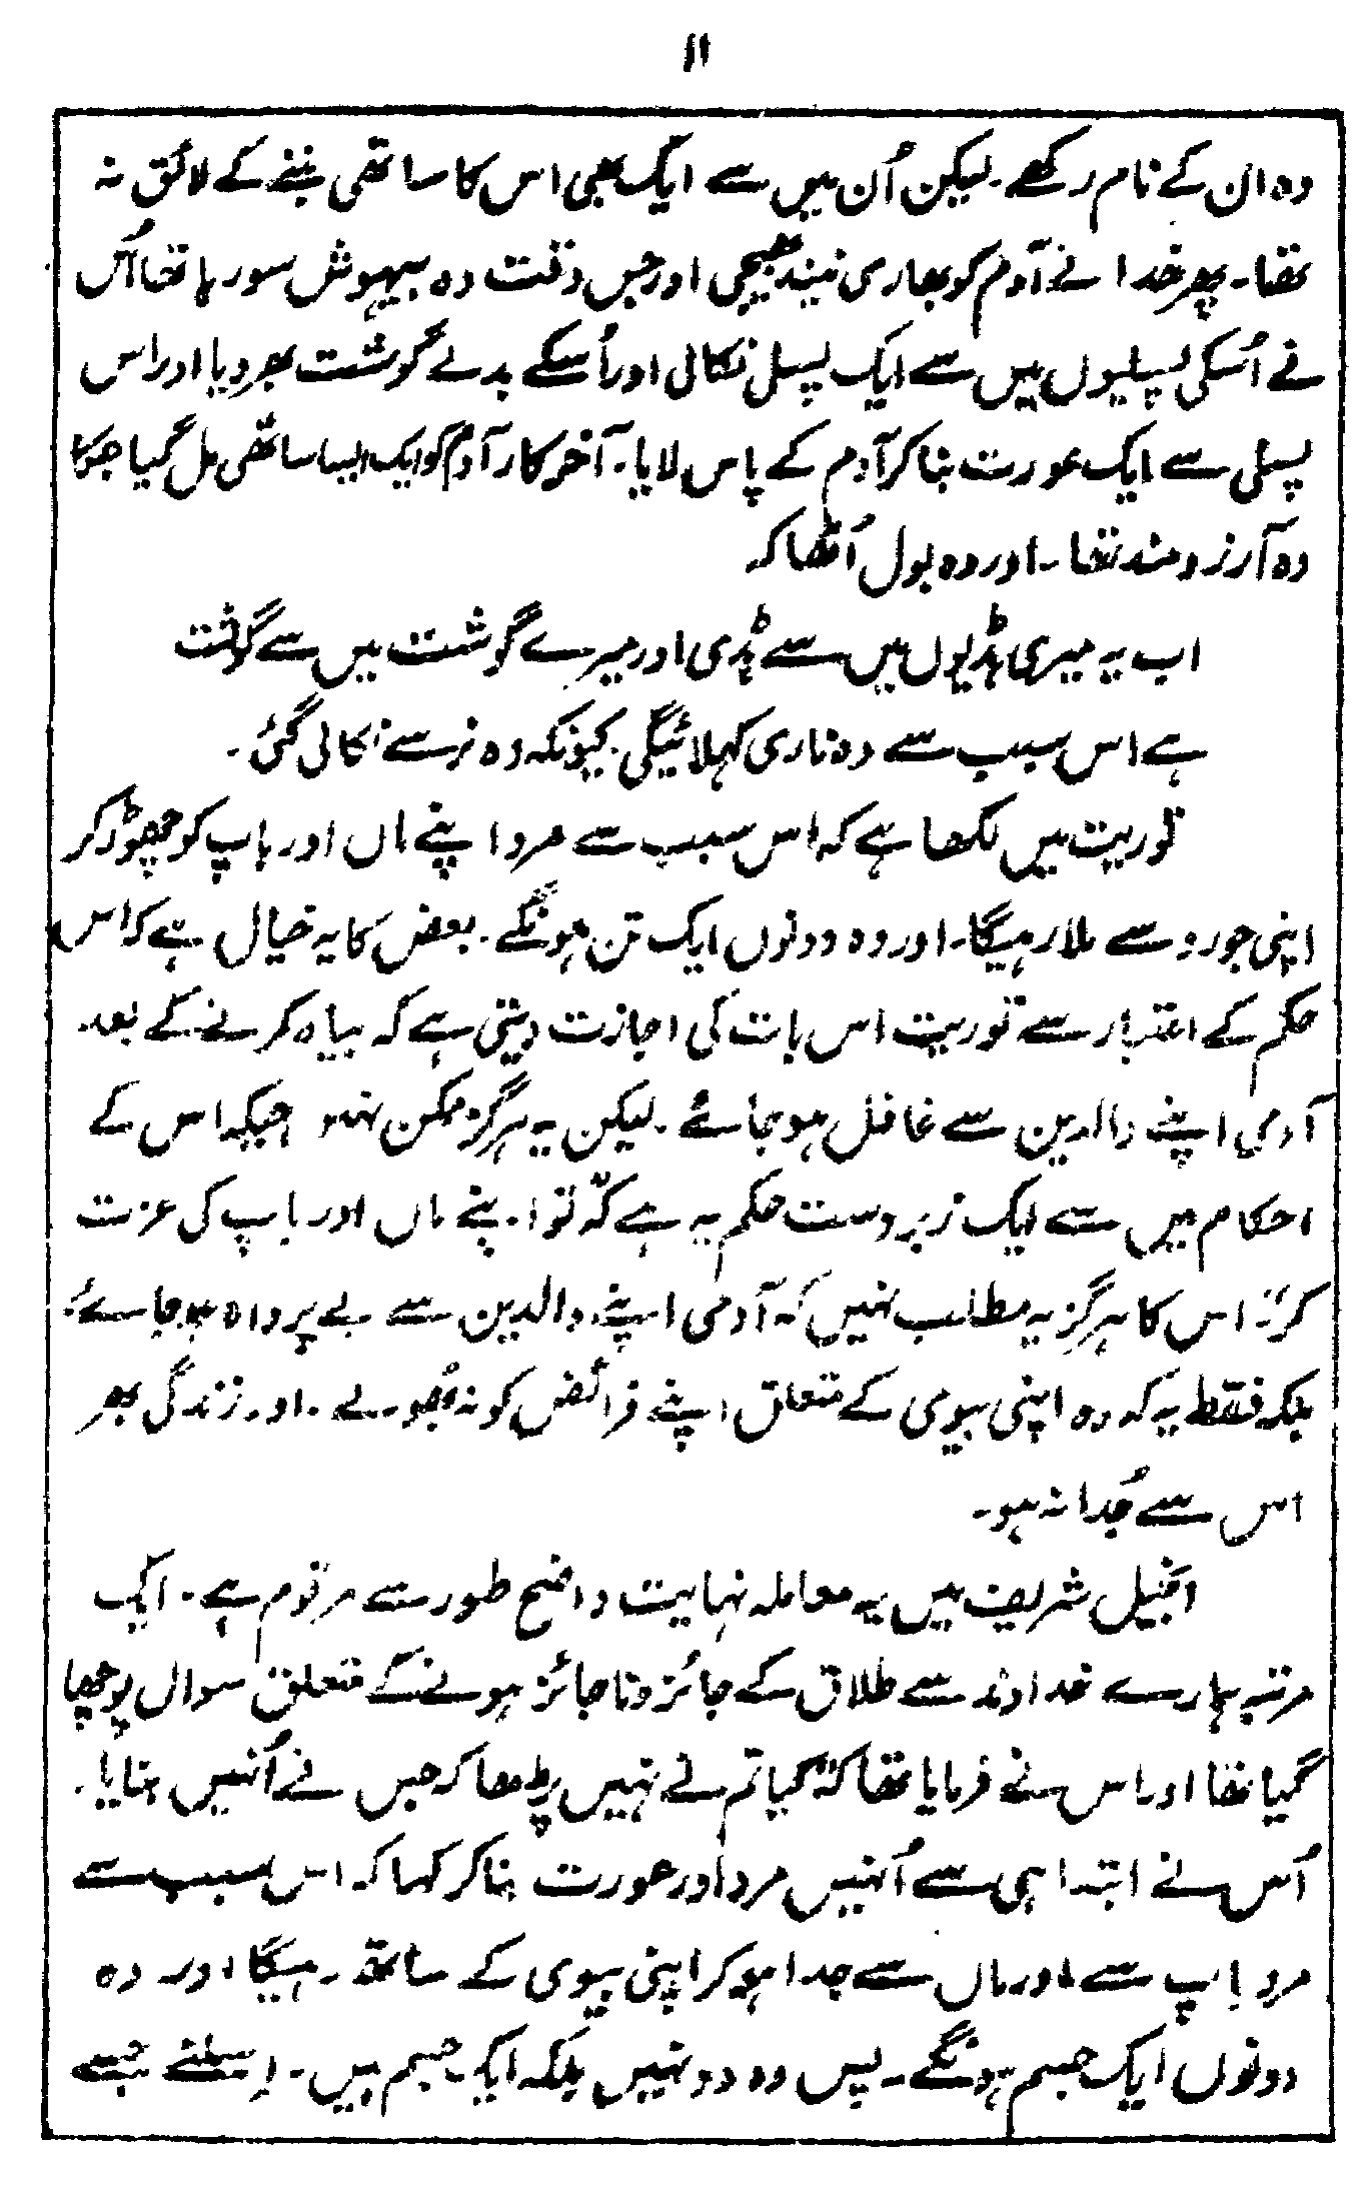 ۱۱
وہ ان کے نام رکھے۔ لیکن اُن میں سے ایک بھی اس کا ساتھی بننے کے لائق نہ
تھا۔ پھر خدا نے آدم کو بھاری نیند بھیجی اور جس وقت وہ بیہوش سو رہا تھا اُس
نے اُسکی پسلیوں میں سے ایک پسلی نکالی اور اُسکے بدلے گوشت بھر دیا اور اس
پسلی سے ایک عورت بنا کر آدم کے پاس لایا۔ آخر کار آدم کو ایک ایسا ساتھی مل گیا جسکا
وہ آرزومند تھا۔ اور وہ بول اُٹھا کہ
اب یہ میری ہڈیوں میں سے ہڈی اور میرے گوشت میں سے گوشت
ہے اس سبب سے وہ ناری کہلائیگی۔ کیونکہ وہ نر سے نکالی گئی۔
توریت میں لکھا ہے کہ اس سبب سے مرد اپنے ماں اور باپ کو چھوڑ کر
اپنی جورو سے ملا رہیگا۔ اور وہ دونوں ایک تن ہونگے۔ بعض کا یہ خیال ہے کہ اس
حکم کے اعتبار سے توریت اس بات کی اجازت دیتی ہے کہ بیاہ کرنے کے بعد
آدمی اپنے والدین سے غافل ہو جائے۔ لیکن یہ ہرگز ممکن نہیں جبکہ اس کے
احکام میں سے ایک زبردست حکم یہ ہے کہ "تو اپنے ماں اور باپ کی عزت
کر"۔ اس کا ہرگز یہ مطلب نہیں کہ آدمی اپنے والدین سے بے پرواہ ہو جائے۔
بلکہ فقط یہ کہ وہ اپنی بیوی کے متعلق اپنے فرائض کو نہ بھُولے۔ اور زندگی بھر
اس سے جُدا نہ ہو۔
انجیل شریف میں یہ معاملہ نہایت واضح طور سے مرقوم ہے۔ ایک
مرتبہ ہمارے خداوند سے طلاق کے جائز و ناجائز ہونے کے متعلق سوال پوچھا
گیا تھا اور اس نے فرمایا تھا کہ "کیا تم نے نہیں پڑھا کہ جس نے اُنہیں بنایا۔
اُس نے ابتدا ہی سے اُنہیں مرد اور عورت بنا کر کہا کہ اس سبب سے
مرد باپ سے اور ماں سے جدا ہو کر اپنی بیوی کے ساتھ رہیگا اور وہ
دونوں ایک جسم ہونگے۔ پس وہ دو نہیں بلکہ ایک جسم ہیں۔ اِسلئے جسے